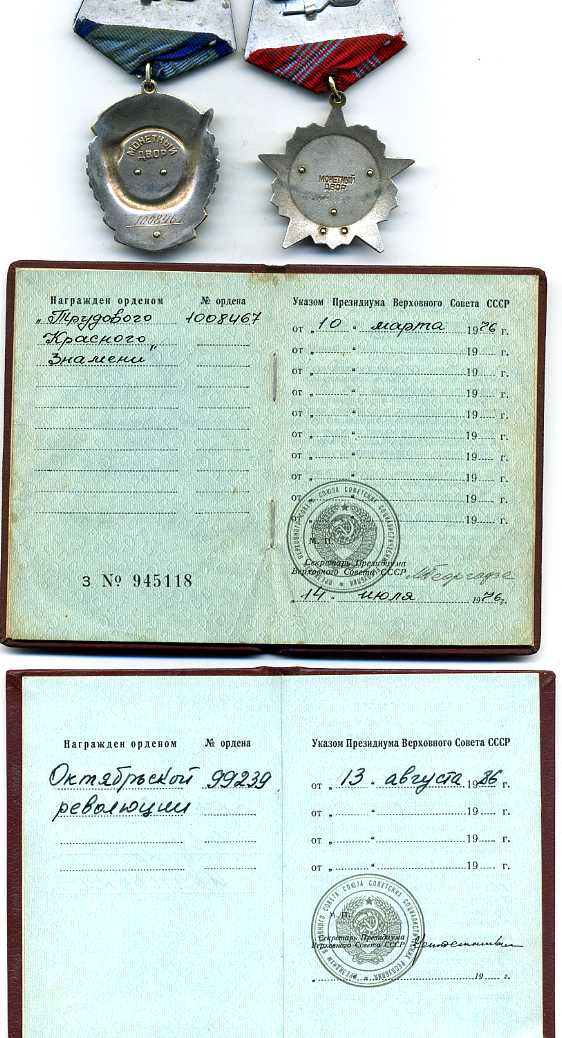 МОНЕТНЫЙ
ДВОР
МОНЕТНЫЙ
ДВОР
Награжден орденом № ордена
„Трудового 1008467
Красного
Знамени"
З № 945118
Указом Президиума Верховного Совета СССР
от „10 " марта 1976 г.
от „ " 19 г.
от „ " 19 г.
от „ " 19 г.
от „ " 19 г.
от „ " 19 г.
от „ " 19 г.
от „ " 19 г.
от „ " 19 г.
" 19 г.
М. П.
Секретарь Президиума
Верховного Совета СССР
„14. июля 1976 г.
Награжден орденом № ордена
Октябрьской 99239
революции
Указом Президиума Верховного Совета СССР
от „13. августа 1986 г.
от „ " 19 г.
от „ " 19 г.
от „ " 19 г.
от „ " 19 г.
М. П.
Секретарь Президиума
Верховного Совета СССР
„ " 19 г.